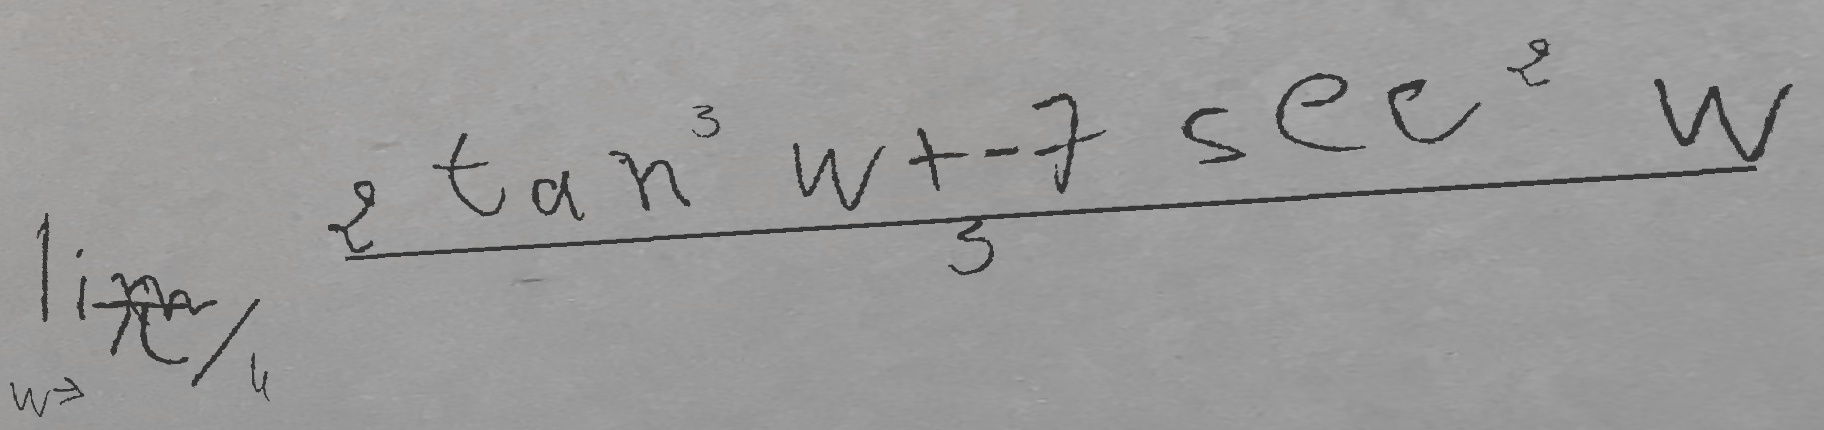 lim w→π/4 (2 tan³ w + -7 sec² w) / 3